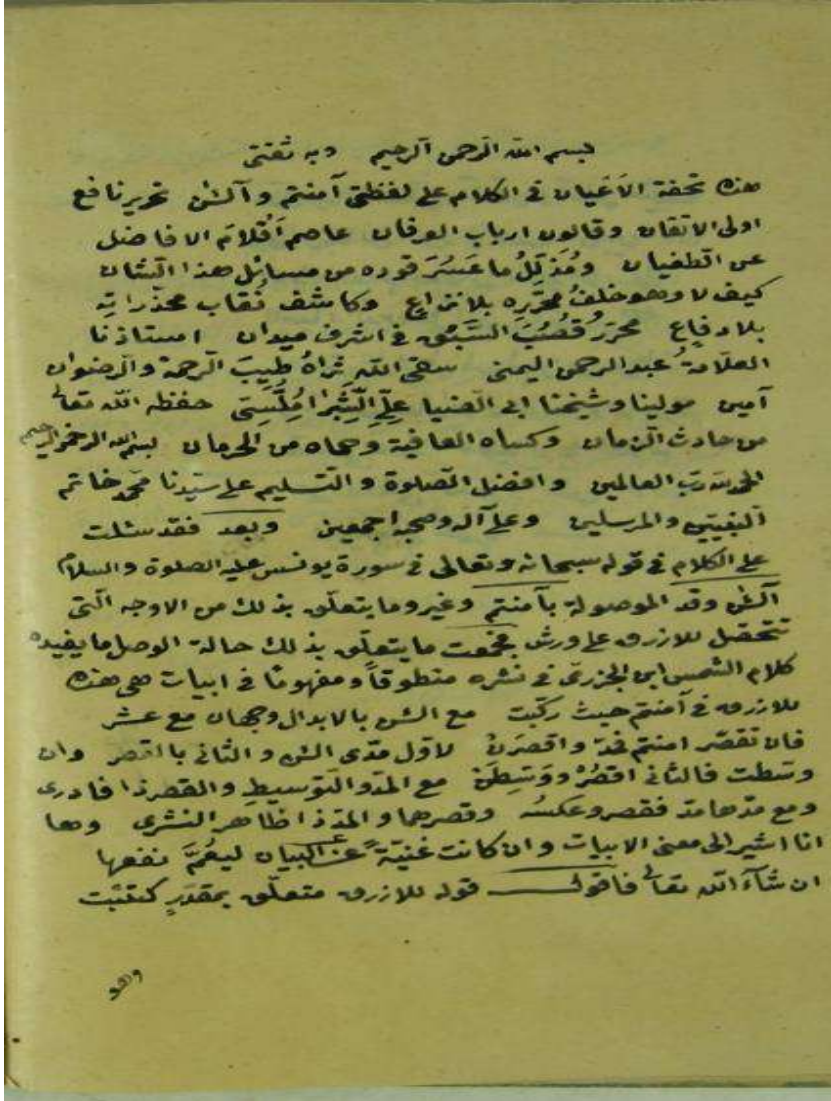 بسم الله الرحمن الرحيم وبه ثقتى
هذه تحفة الاعيان فى الكلام على لفظتى آمنتم وآلئن تحرير نافع
اولى الاتقان وقانون ارباب العرفان عاصم أقلام الافاضل
عن الطغيان ومُذَلِّلُ ما عَسُرَ قوده من مسائل هذا الشان
كيف لا وهو خلفُ محرّرِه بلا نزاعٍ وكاشف نُقاب مخدّراته
بلا دفاعٍ محرز قُصُبَ السَّبَق فى اشرف ميدان استاذنا
العلّامةُ عبد الرحمن اليمنى سقى الله ثراهُ طيبَ الرحمة والرضوان
آمين مولينا وشيخنا ابى الضيا علىّ الشبراملسى حفظه الله تعالى
من حادث الزمان وكساه العافية وحماه من الحرمان بسم الله الرحمن الرحيم
الحمد لله ربّ العالمين وافضل الصلوة والتسليم على سيّدنا محمّد خاتم
النبيين والمرسلين وعلى آله وصحبه اجمعين وبعد فقد سئلت
على الكلام فى قوله سبحانه وتعالى فى سورة يونس عليه الصلوة والسلام
آلئن وقد الموصولة بآمنتم وغيره وما يتعلّق بذلك من الاوجه الّتى
تتحصّل للازرق على ورش فجمعت ما يتعلّق بذلك حالة الوصل ما يفيده
كلام الشمس ابن الجزرىّ فى نشره منطوقاً ومفهومًا فى ابيات هى هذه
للازرق فى آمنتم حيث ركّبت مع آلئن بالابدال وجهان مع عشر
فان تقصر امنتم فمدّ واقصرنْ لاوّل مدّى آلئن والثانى بالقصر وان
وسّطت فالثانى اقصُرْ ووَسّطن مع المدّ والتّوسيط والقصر ذا فادرى
ومع مدّها مدّ فقصر وعكسهُ وقصرهما والمدّ ذا ظاهر النشرى وها
انا اشير الى معنى الابيات وان كانت غنيّة عن البيان ليعُمَّ نفعها
ان شآء الله تعالى فاقول قوله للازرق متعلّق بمقدّرٍ كتثبت
وهو